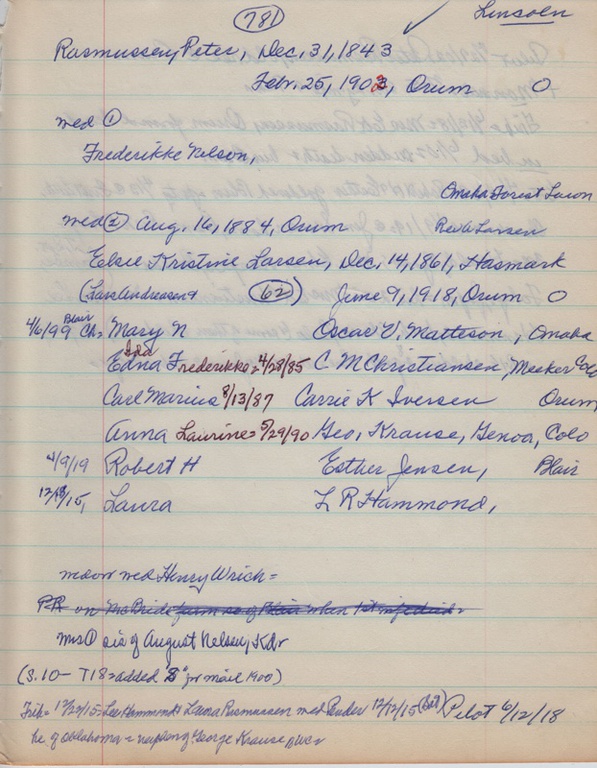 781
Lincoln
Rasmussen, Peter, Dec. 31, 1843
Feb. 25, 1903, Orum O
med ①
Frederikke Nelson,
Omaha Forest Lawn
med ② Aug. 16, 1884, Orum Rev A Larsen
Elsie Kristine Larsen, Dec. 14, 1861, Hasmark
(Lars Andreasen + 62) June 9, 1918, Orum O
4/6/99 Blair Ch= Mary N Oscar V. Matteson, Omaha
Ida
Edna Frederikke = 4/28/85 C M Christiansen, Meeker Colo
Carl Marius 8/13/87 Carrie K Iversen Orum
Anna Laurine = 5/29/90 Geo. Krause, Genoa, Colo
4/9/19 Robert H Esther Jensen, Blair
Laura L R Hammond,
widow med Henry Wrich =
PR on McBride farm so of Blair when
Mrs ① sis of August Nelson, Kdr
(S. 10 - T18 = added for mail 1900)
Trib = 12/22/15 = Lee Hammond + Laura Rasmussen med Pender 12/12/15 Pilot 6/12/18
he of Oklahoma = George Krause